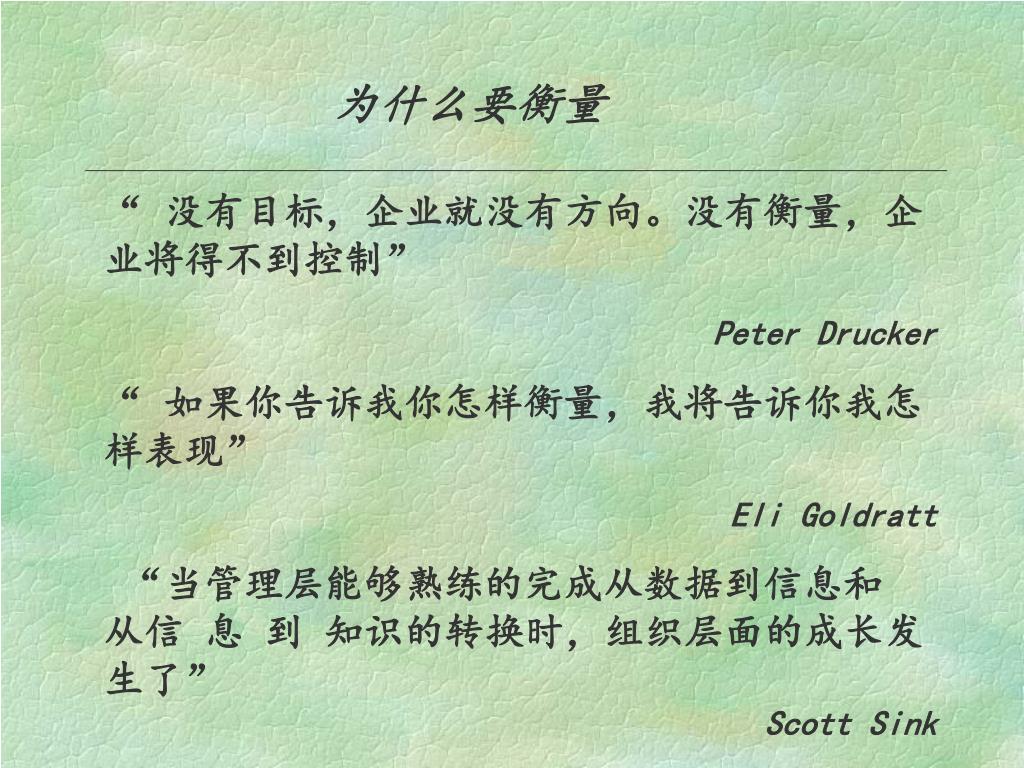 为什么要衡量
“ 没有目标，企业就没有方向。没有衡量，企
业将得不到控制”
Peter Drucker
“ 如果你告诉我你怎样衡量，我将告诉你我怎
样表现”
Eli Goldratt
“当管理层能够熟练的完成从数据到信息和
从信 息 到 知识的转换时，组织层面的成长发
生了”
Scott Sink